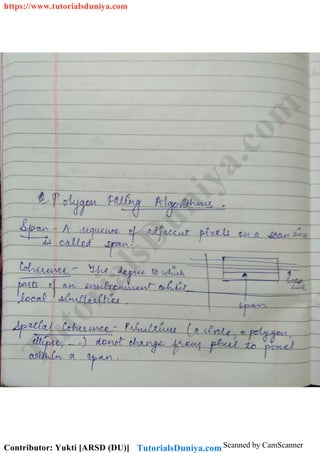 https://www.tutorialsduniya.com
Polygon Filling Algorithms.
Span - A sequence of adjacent pixels on a scan line
is called span.
Coherence - The degree to which
parts of an environment exhibit
local similarities.
scan
line
span
Spatial Coherence - Primitives (a circle, a polygon,
ellipse, ---) donot change from pixel to pixel
within a span.
TutorialsDuniya.com
Contributor: Yukti [ARSD (DU)] TutorialsDuniya.com Scanned by CamScanner